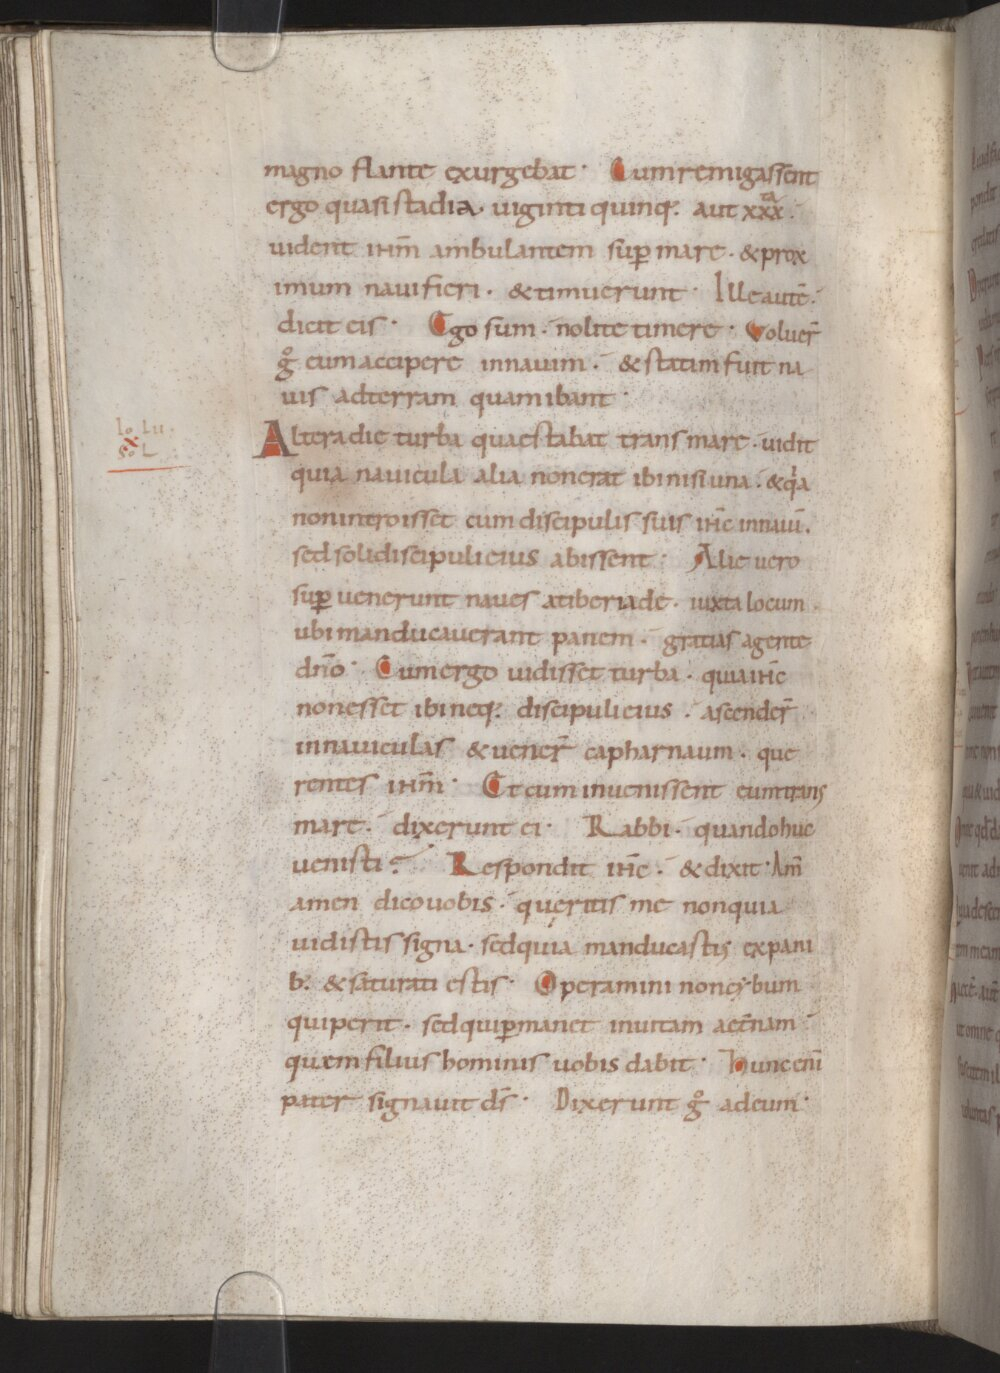 magno flante exurgebat · Cum remigassent
ergo quasi stadia · uiginti quinq; aut xxx ta ·
uident ihm̄ ambulantem sup̄ mare · & prox
imum naui fieri · & timuerunt · Ille autē ·
dicit eis · Ego sum · nolite timere · Voluer̄
gͦ eum accipere in nauim · & statim fuit na
uis ad terram quam ibant ·
Io Lu ·
Altera die turba quae stabat trans mare · uidit
L
quia nauicula alia non erat ibi nisi una · & qͥa
non introisset cum discipulis suis ihc̄ in nauī ·
sed soli discipuli eius abissent · Alie uero
sup̄ uenerunt naues a tiberiade · iuxta locum ·
ubi manducauerant panem · gratias agente
dn̄o · Cum ergo uidisset turba · quia ihc̄
non esset ibi neq; discipuli eius · ascender̄
in nauiculas & uener̄ capharnaum · que
rentes ihm̄ · Et cum inuenissent eum trans
mare · dixerunt ei · Rabbi · quando huc
uenisti ? Respondit ihc̄ · & dixit · Am̄
amen dico uobis · queritis me non quia
uidistis signa · sed quia manducastis ex pani
b; & saturati estis · Operamini non cybum
qui perit · sed qui p̄manet in uitam aet̄nam ·
quem filius hominis uobis dabit · Hunc eni
pater signauit ds̄ · Dixerunt gͦ ad eum ·